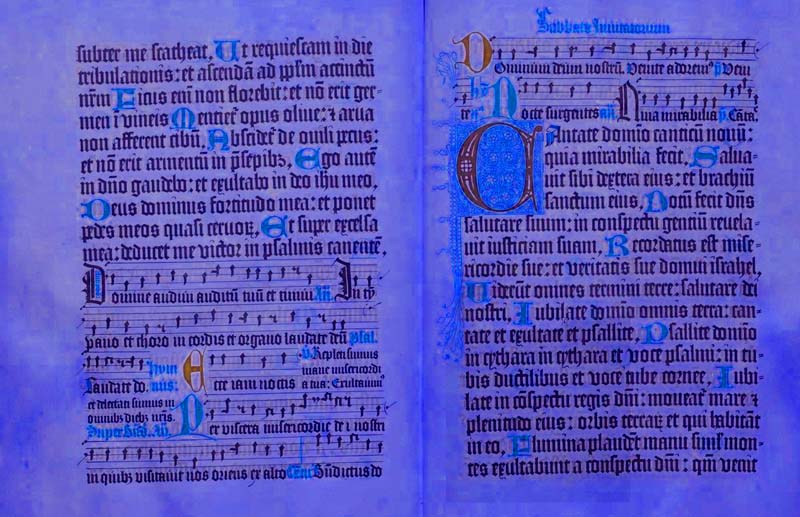 subter me scateat, Ut requiescam in die
tribulationis: et ascendā ad pp̄lm accinctū
nr̄m Ficus enī non florebit: et nō erit ger-
men ī vineis Mentiet' opus oliue: & arua
non afferent cibū, Abscidet' de ouili pecus:
et nō erit armentū in p̄sepibꝫ, Ego autē
in dn̄o gaudebo: et exultabo in deo ih̄u meo,
Deus dominus fortitudo mea: et ponet
pedes meos quasi ceruoꝝ, Et super excelsa
mea: deducet me victor in psalmis canentē,
Domine audiui auditū tuū et timui An̄. In ty
pano et choro in cordis et organo laudate deū psal.
Laudate do.
Ecce iam noctis
V Repleti sumus
mane misericordi
a tua: Exultauim'
et delectati sumus in
omnibꝫ diebꝫ nr̄is.
Super Bn̄d. An̄.
Per viscera misericordie de i nostri
in quibꝫ visitauit nos oriens ex alto Cant Bn̄dictus do
Sabbato Inuitatorium
Dominum deum nostrū. Venite adorem' p̄ Veni
te Nocte surgentes An̄ Quia mirabilia p̄ Cāta.
Cantate domīo canticū nouū:
quia mirabilia fecit, Salua-
uit sibi dextera eius: et brachiū
sanctum eius, Notū fecit dn̄s
salutare suum: in conspectu gentiū reuela-
uit iusticiam suam, Recordatus est mise-
ricordie sue: et veritatis sue domui israhel,
Viderūt omnes termini terre: salutare dei
nostri, Iubilate domīo omnis terra: can-
tate et exultate et psallite, Psallite domīo
in cythara in cythara et voce psalmi: in tu-
bis ductilibus et voce tube cornee, Iubi-
late in cōspectu regis dn̄i: moueat' mare &
plenitudo eius: orbis terraꝝ et qui habitāt
in eo, Flumina plaudēt manu simł mon-
tes exultabunt a conspectu dn̄i: qm̄ venit